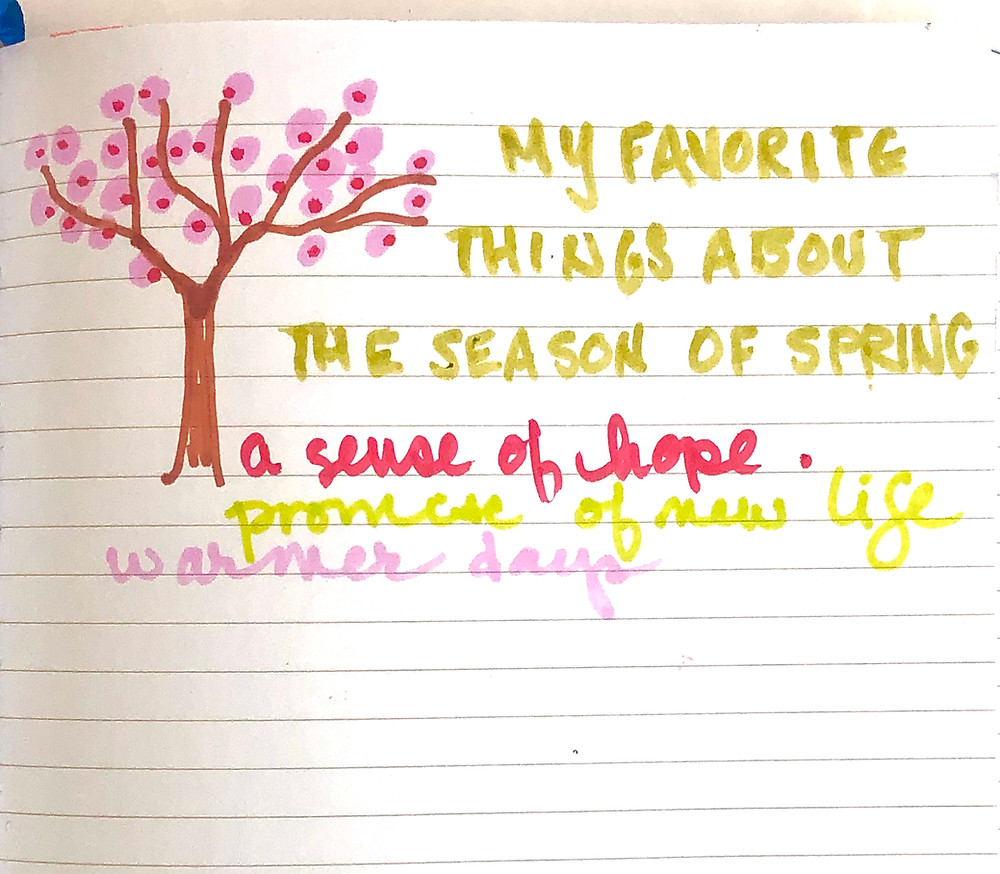 MY FAVORITE
THINGS ABOUT
THE SEASON OF SPRING
a sense of hope.
promise of new life
warmer days